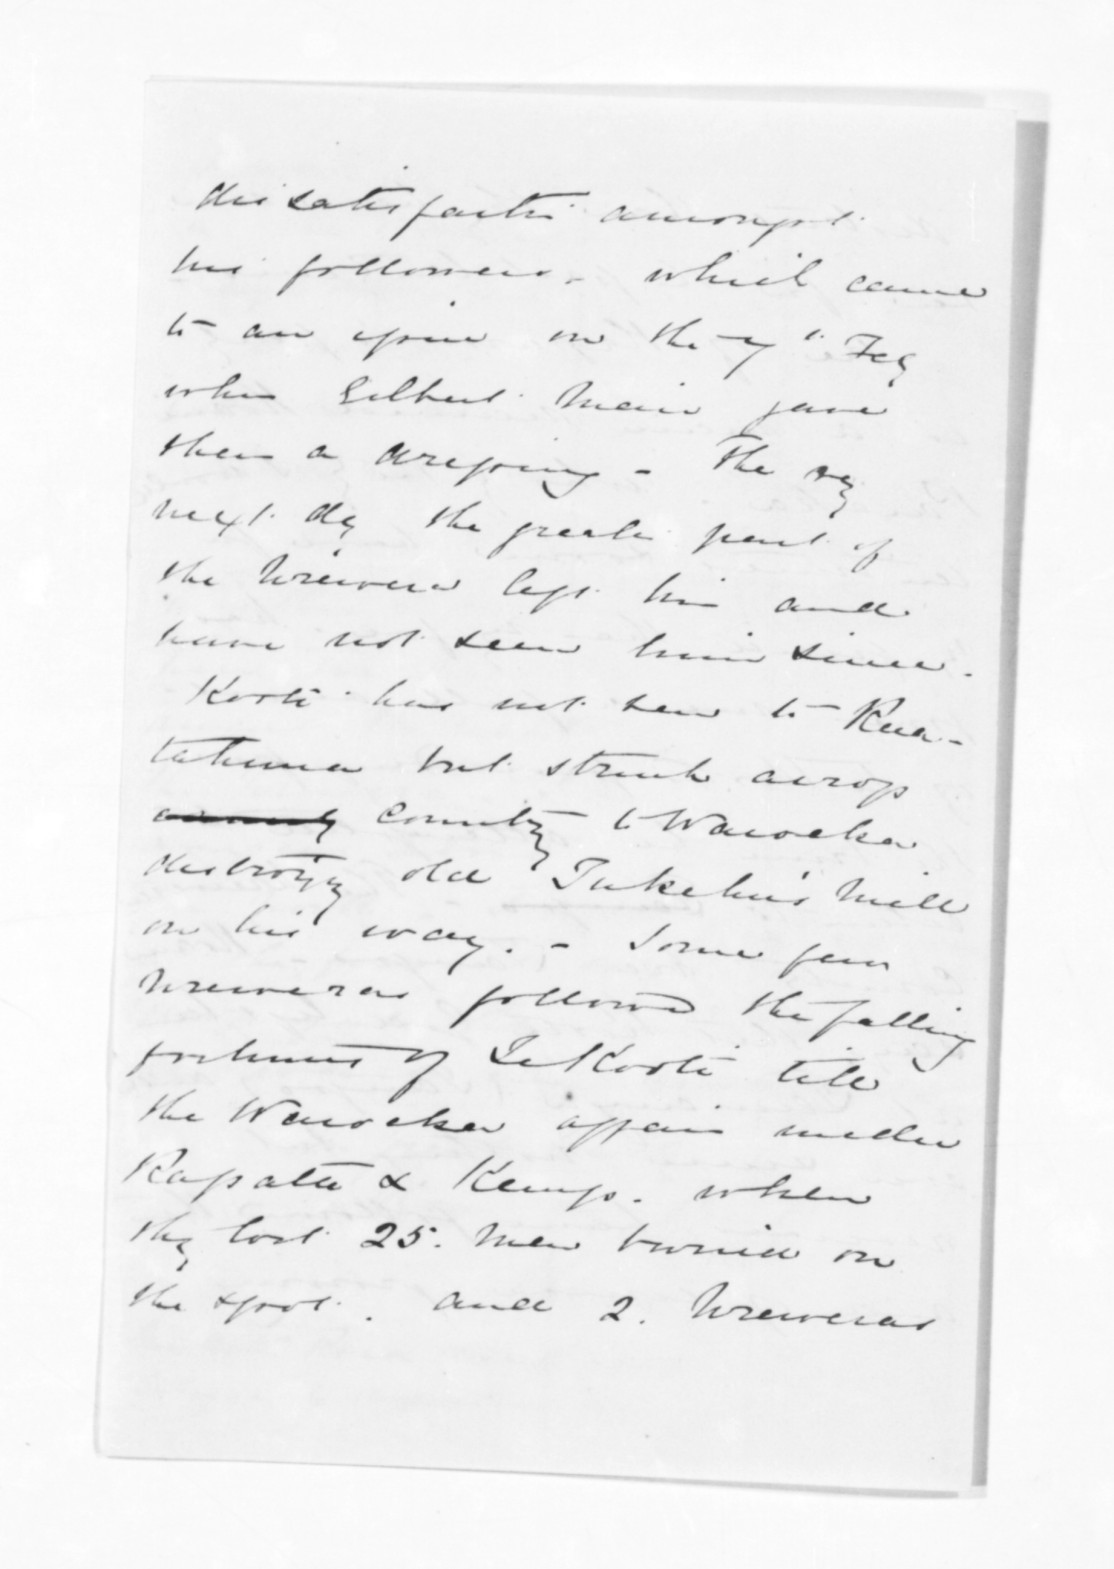 dissatisfactn amongst
his followers, which came
to an issue on the 7th Feby
when Gilbert Mair gave
them a dressing - The very
next day the greater part of
the Urewera left him and
have not seen him since.
Kooti has not been to Rua-
tahuna but struck across
country to Waioeka
destroying old Tukehu's Mill
on his way. - Some few
Ureweras followed the falling
fortunes of Te Kooti till
the Waioeka affair under
Rapata & Kemp. when
they lost 25. men buried on
the spot. and 2. Ureweras